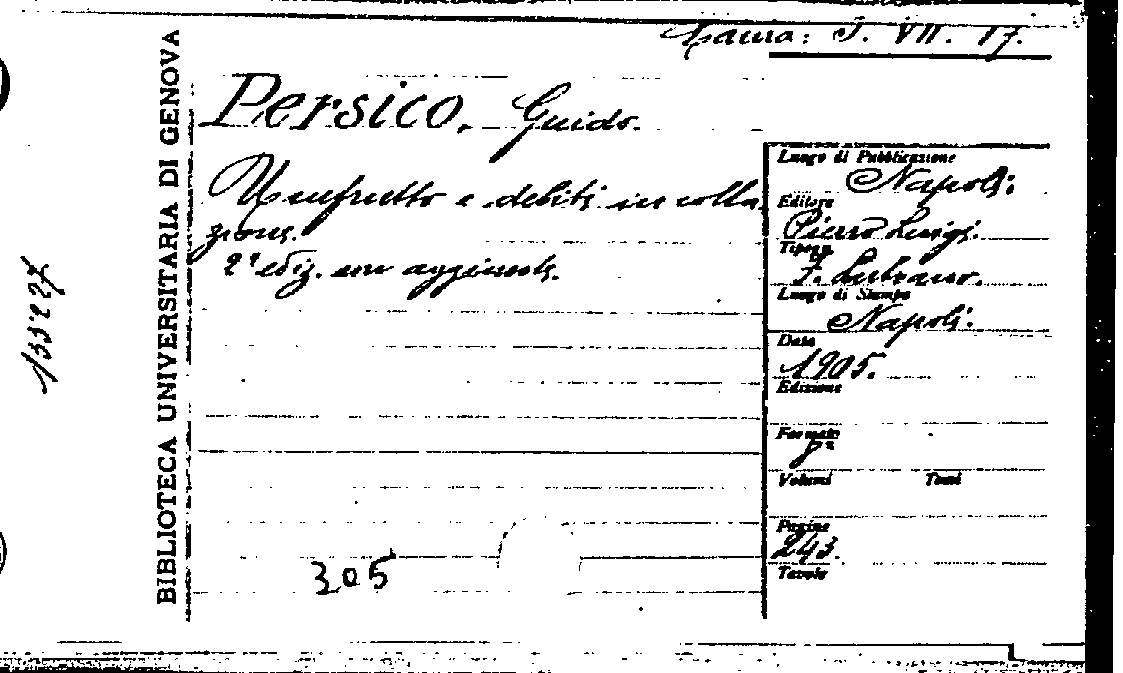 Laura: J. VII. 17.
BIBLIOTECA UNIVERSITARIA DI GENOVA
133227
Persico, Guido.
Usufrutto e debiti in colla
zione.
2ª ediz. con aggiunte.
305
Luogo di Pubblicazione
Napoli.
Editore
Pierro Luigi.
Tipogr.
F. Lubrano.
Luogo di Stampa
Napoli.
Data
1905.
Edizione
Formato
8°
Volumi Tomi
Pagine
243.
Tavole